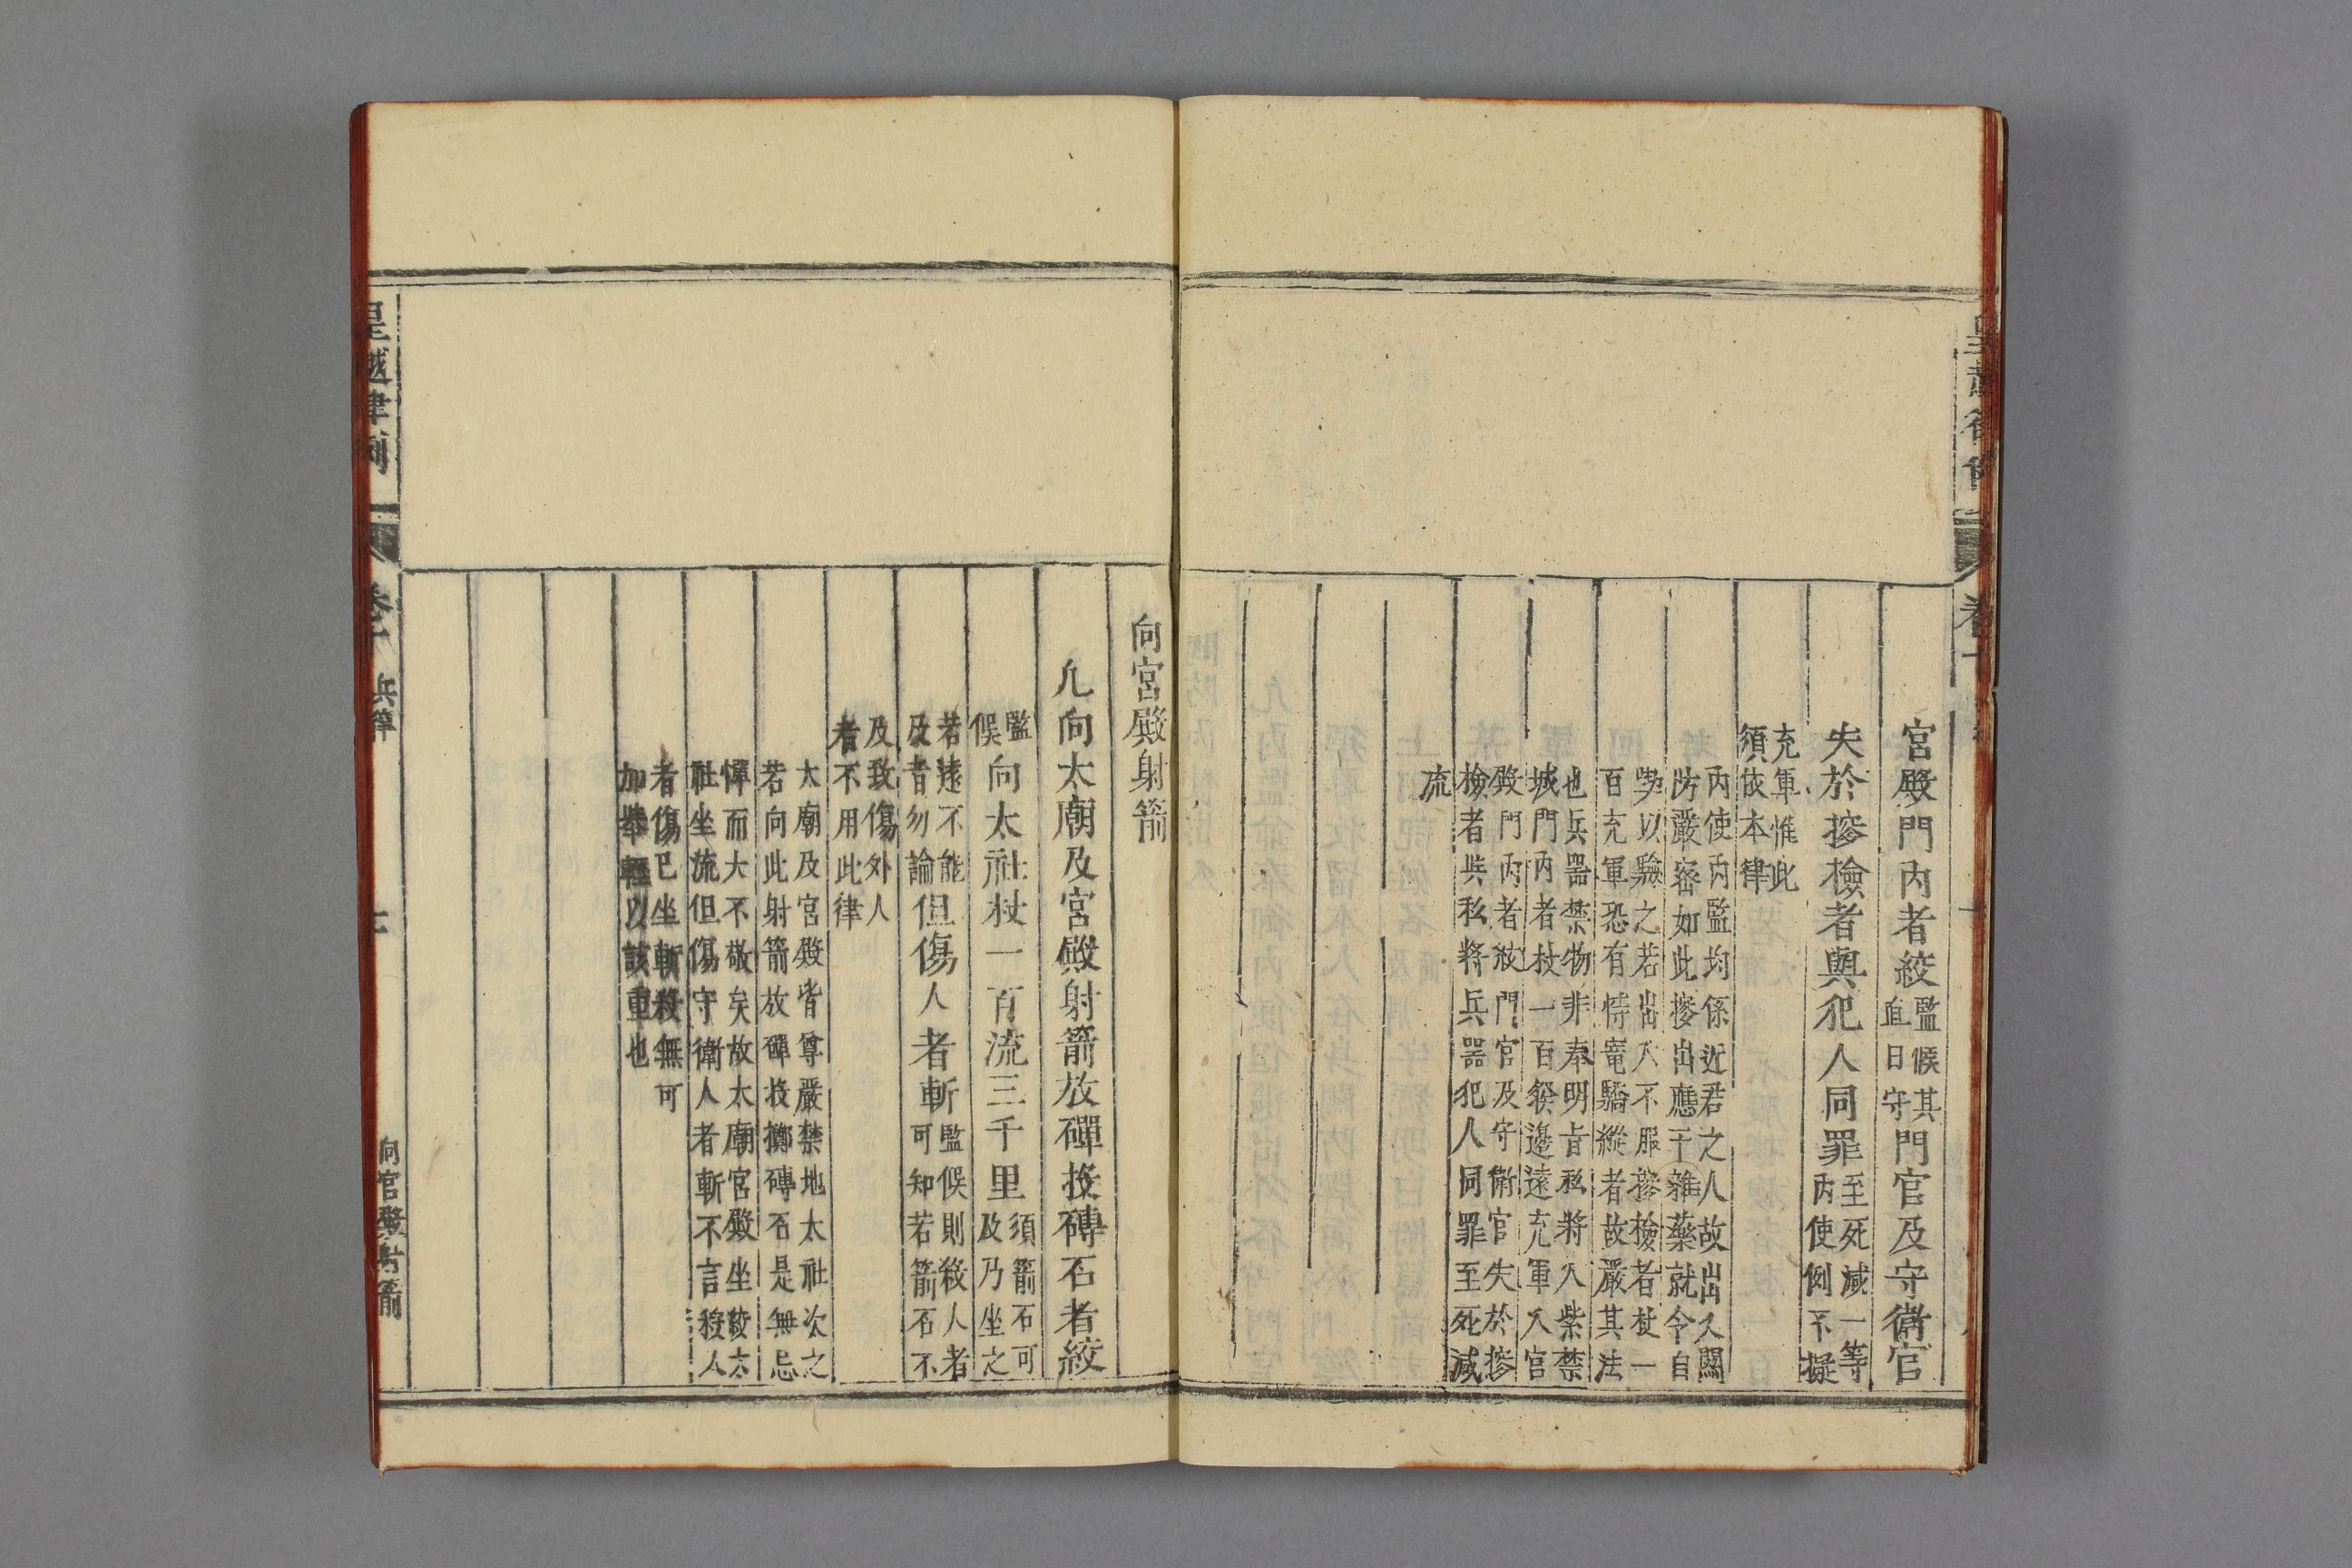 宮殿門內者絞監候其直日守門官及守衛官
失於搜檢者與犯人同罪至死減一等內使例不擬
充軍惟此須依本律
內使內監均係近君之人故出入關防嚴密如此搜出應干雜藥就令自
喫以驗之若出入不服搜檢者杖一百充軍恐有恃寵驕縱者故嚴其法
也兵器禁物非奉明旨私將入紫禁城門內者杖一百發邊遠充軍入宮
殿門內者絞門官及守衛官失於搜檢者與私將兵器犯人同罪至死減
流
向宮殿射箭
凡向太廟及宮殿射箭放彈投磚石者絞
監候向太社杖一百流三千里須箭石可及乃坐之
若遠不能及者勿論但傷人者斬監候則殺人者可知若箭石不
及致傷外人者不用此律
太廟及宮殿皆尊嚴禁地太社次之若向此射箭放彈投擲磚石是無忌
憚而大不敬矣故太廟宮殿坐絞太社坐流但傷守衛人者斬不言殺人
者傷已坐斬殺無可加舉輕以該重也
皇越律例 卷 兵律 七 向宮殿射箭